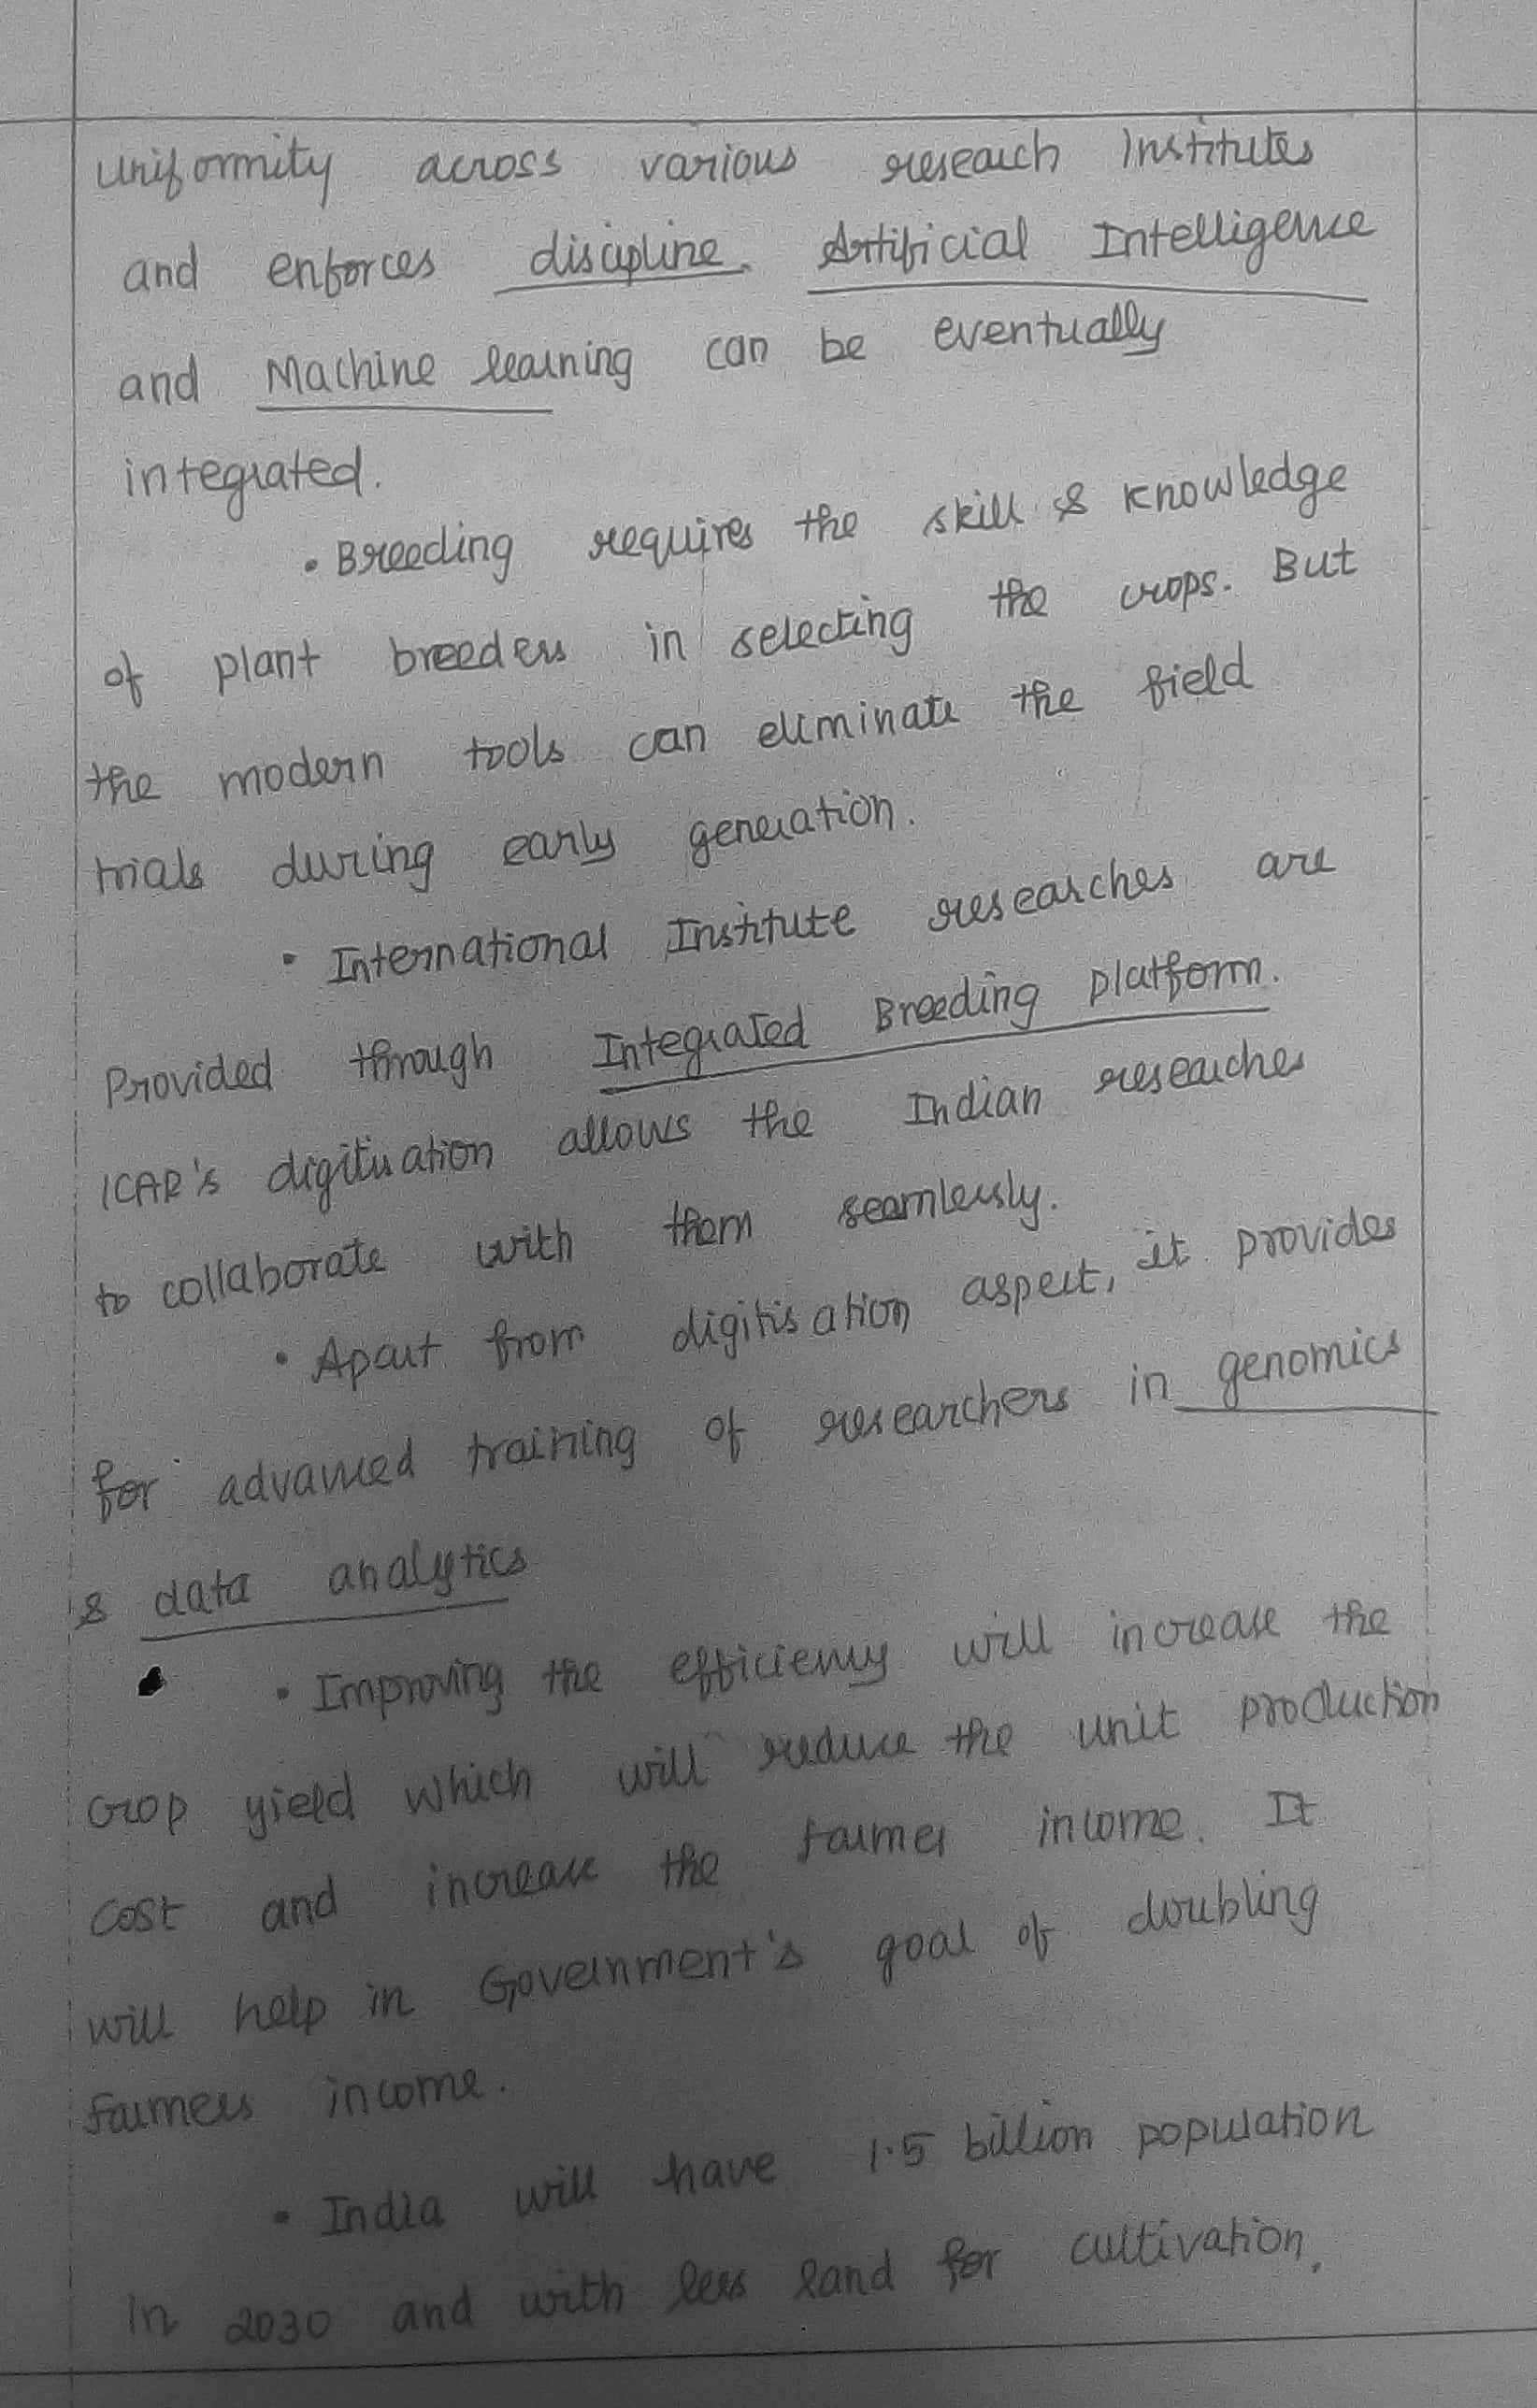 uniformity across various research Institutes
and enforces discipline. Artificial Intelligence
and Machine learning can be eventually
integrated.
• Breeding requires the skill & knowledge
of plant breeders in selecting the crops. But
the modern tools can eliminate the field
trials during early generation.
• International Institute researches are
Provided through Integrated Breeding platform.
ICAR's digitisation allows the Indian researches
to collaborate with them seamlessly.
• Apart from digitisation aspect, it provides
for advanced training of researchers in genomics
& data analytics
• Improving the efficiency will increase the
crop yield which will reduce the unit production
cost and increase the farmer income. It
will help in Government's goal of doubling
farmers income.
• India will have 1.5 billion population
in 2030 and with less land for cultivation.